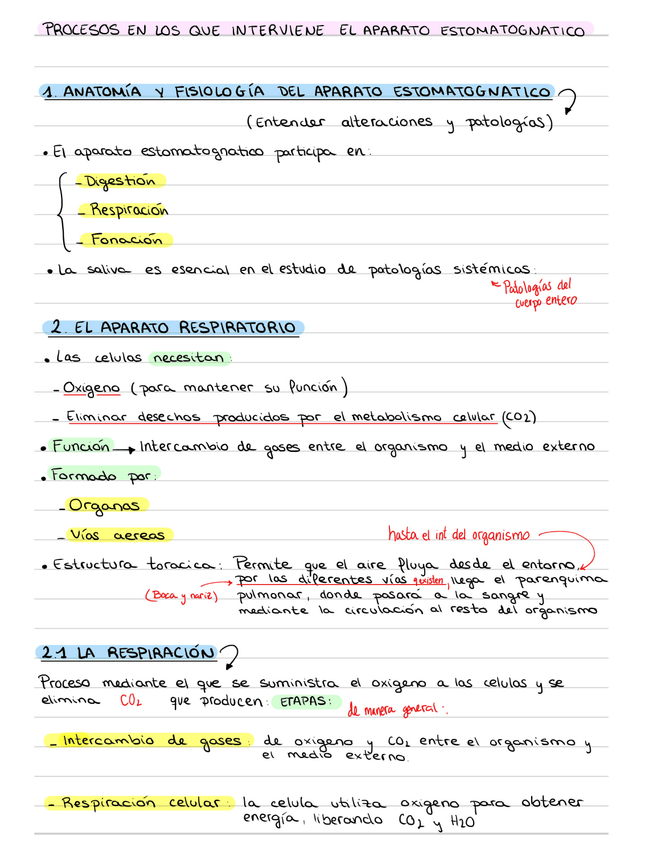 PROCESOS EN LOS QUE INTERVIENE EL APARATO ESTOMATOGNATICO
1. ANATOMÍA Y FISIOLOGÍA DEL APARATO ESTOMATOGNATICO
(Entender alteraciones y patologías)
• El aparato estomatognatico participa en:
- Digestión
- Respiración
- Fonación
• La saliva es esencial en el estudio de patologías sistémicas.
Patologías del
cuerpo entero
2. EL APARATO RESPIRATORIO
• Las celulas necesitan:
- Oxigeno (para mantener su función)
- Eliminar desechos producidos por el metabolismo celular (CO2)
• Función → Intercambio de gases entre el organismo y el medio externo
• Formado por:
- Organos
- Vías aereas
hasta el int del organismo
• Estructura toracica: Permite que el aire fluya desde el entorno,
por las diferentes vías q existen, llega el parenquima
(Boca y nariz) pulmonar, donde pasará a la sangre y
mediante la circulación al resto del organismo
2.1 LA RESPIRACIÓN
Proceso mediante el que se suministra el oxigeno a las celulas y se
elimina CO2 que producen: ETAPAS:
de manera general:
- Intercambio de gases: de oxigeno y CO2 entre el organismo y
el medio externo.
- Respiración celular: la celula utiliza oxigeno para obtener
energía, liberando CO2 y H2O